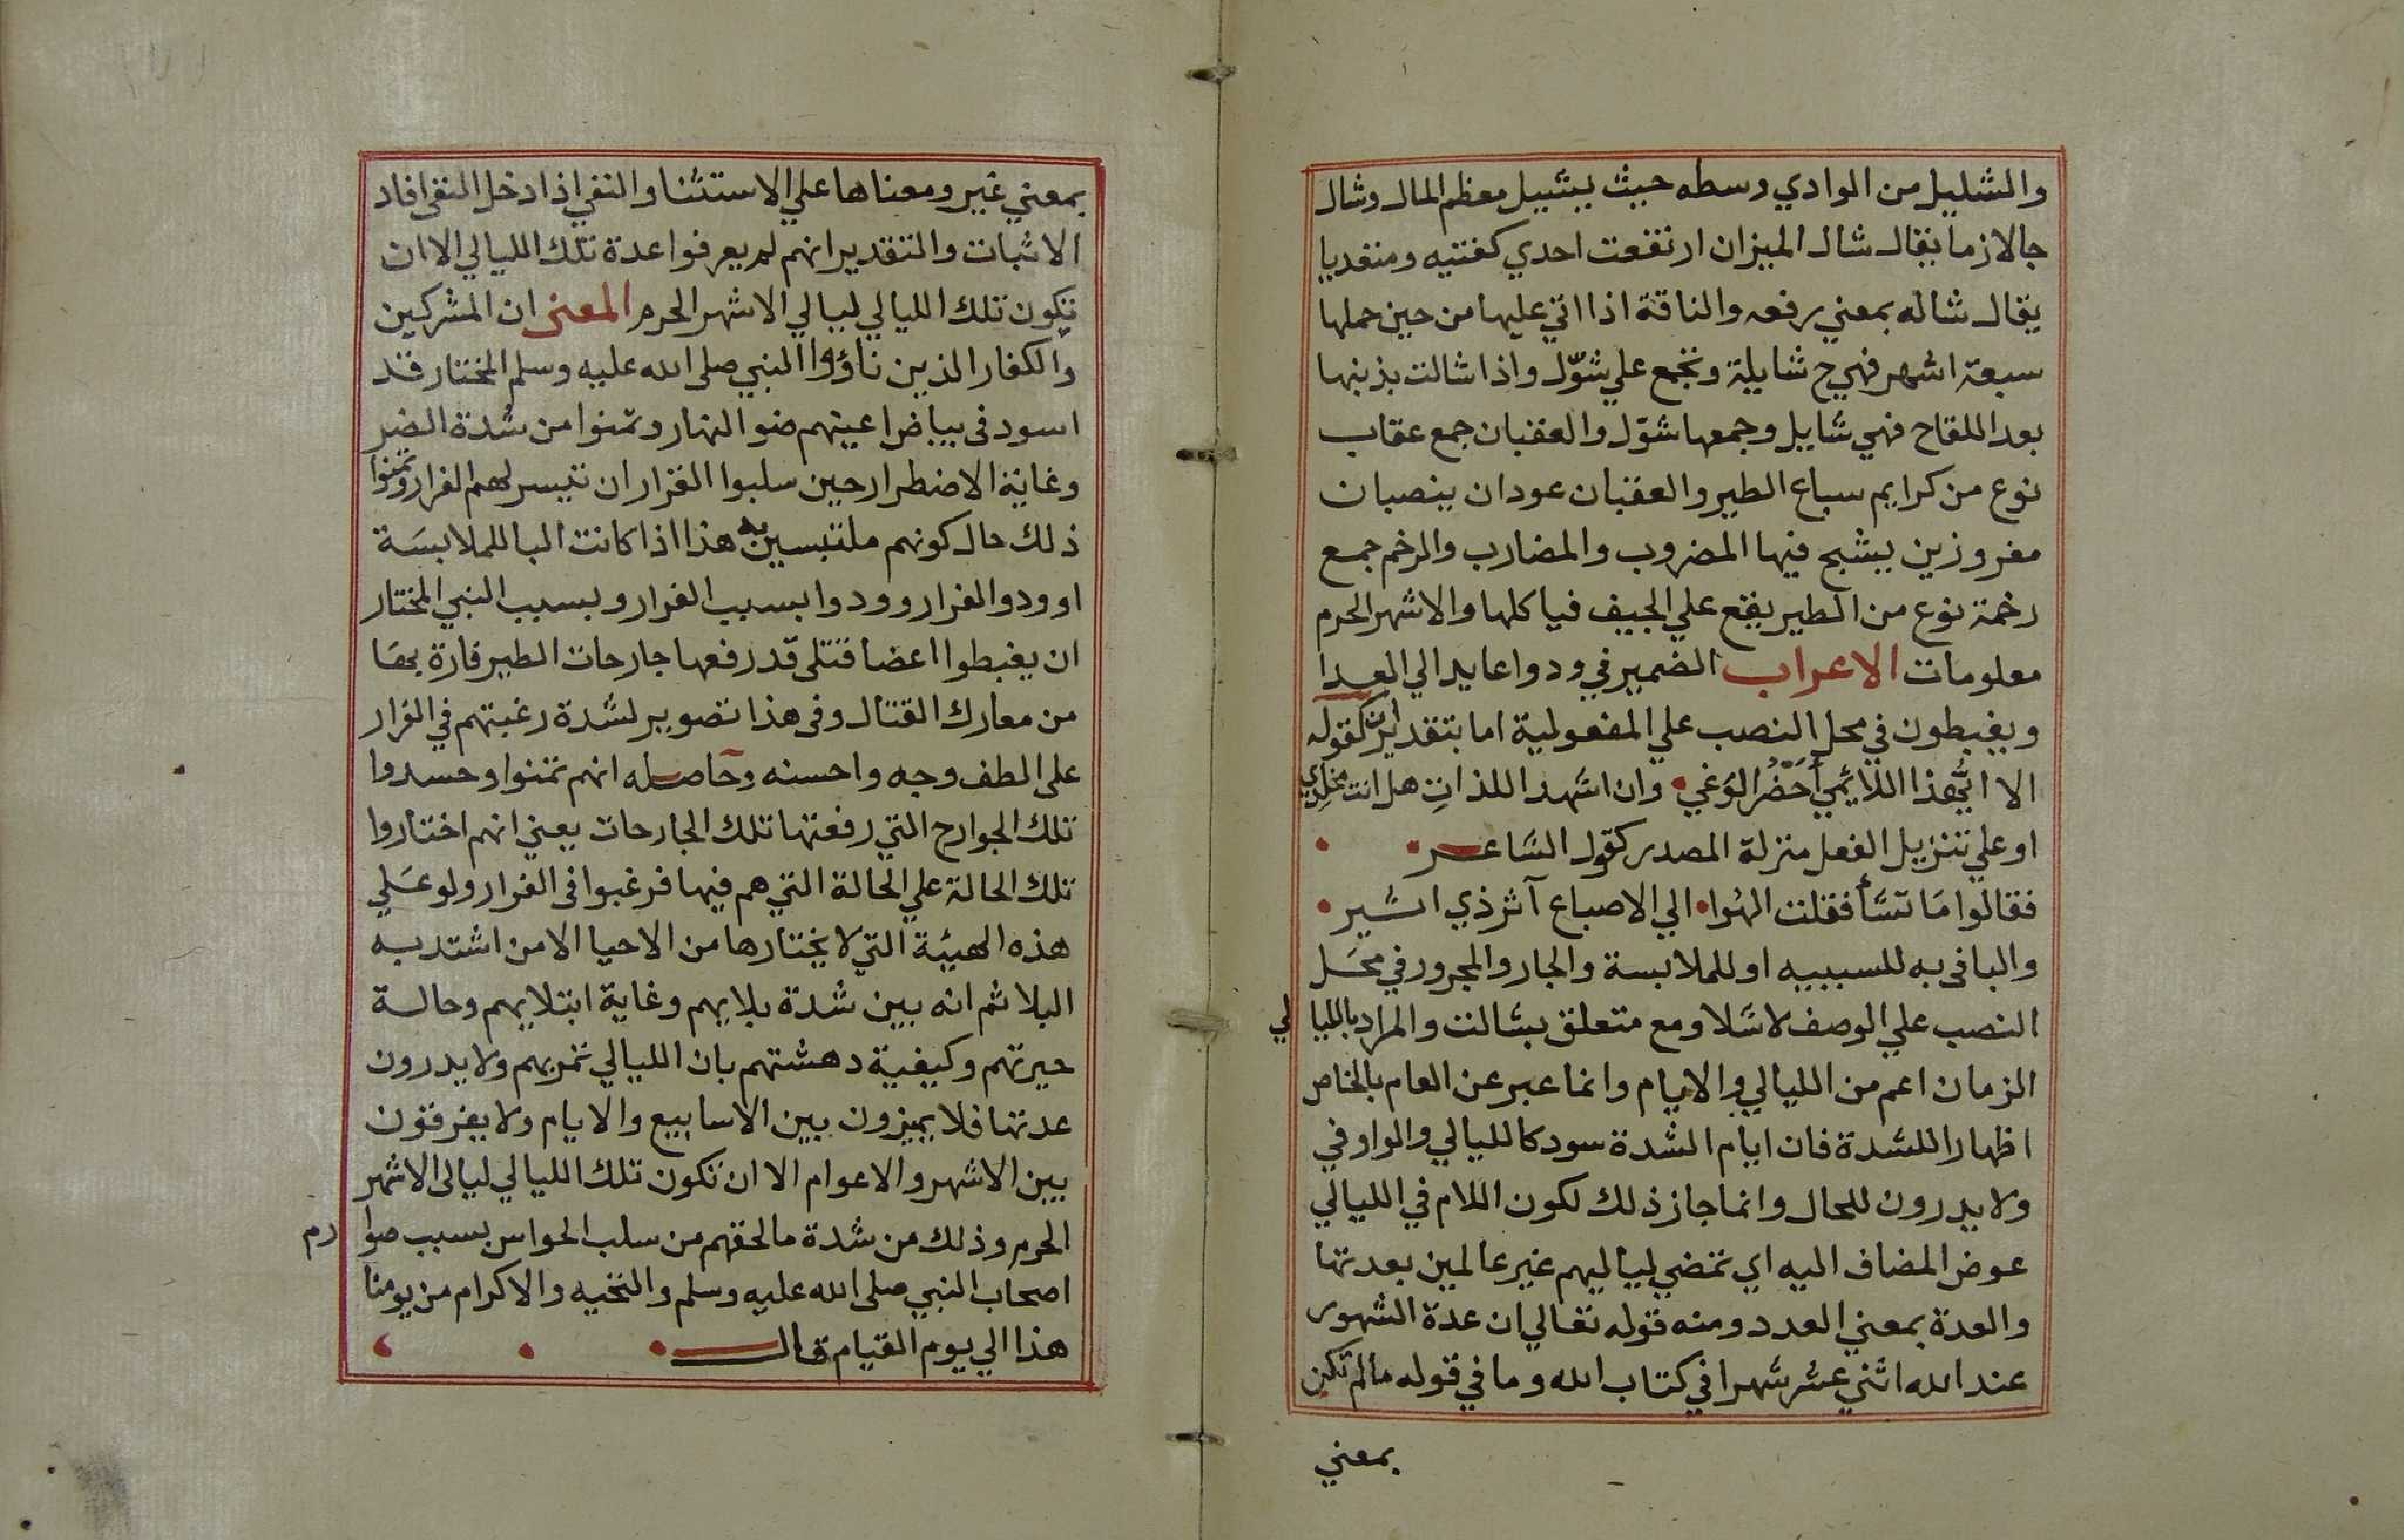 والشليل من الوادي وسطه حيث يسيل معظم المال وشال
جا لازما يقال شال الميزان ارتفعت احدي كفتيه ومتعديا
يقال شاله بمعني رفعه والناقة اذا اتي عليها من حين حملها
سبعة اشهر فهي ح شايلة وتجمع علي شوّل واذا شالت بذنبها
بعد اللقاح فهي شايل وجمعها شوّل والعقبان جمع عقاب
نوع من كرايم سباع الطير والعقبان عودان ينصبان
مغروزين يشبح فيها المضروب والمضارب والرخم جمع
رخمة نوع من الطير يقع علي الجيف فياكلها والاشهر الحرم
معلومات الاعراب الضمير في ودوا عايد الي العدا
ويغبطون في محل النصب علي المفعولية اما بتقدير ان كقوله
الا ايُّهذا اللايمي أحضُرَ الوغي وان اشهد اللذاتِ هل انت مخلدي
او علي تنزيل الفعل منزلة المصدر كقول الشاعر
فقالوا مَا تشَأ فقلت الهوا الي الاصباع آثر ذي اثير
والبا في به للسببيه او للملابسة والجار والمجرور في محل
النصب علي الوصف لاشلا ومع متعلق بشالت والمراد بالليالي
الزمان اعم من الليالي والايام وانما عبر عن العام بالخاص
اظهارا للشدة فان ايام الشدة سود كالليالي والواو في
ولا يدرون للحال وانما جاز ذلك لكون اللام في الليالي
عوض المضاف اليه اي تمضي لياليهم غير عالمين بعدتها
والعدة بمعني العدد ومنه قوله تعالي ان عدة الشهور
عند الله اثني عشر شهرا في كتاب الله وما في قوله مالم تكن
بمعني
بمعني غير ومعناها علي الاستثنا والنفي اذا دخل النفي افاد
الاثبات والتقدير انهم لم يعرفوا عدة تلك الليالي الا ان
تكون تلك الليالي ليالي الاشهر الحرم المعنى ان المشركين
والكفار الذين ناؤوا النبي صلى الله عليه وسلم المختار قد
اسود في بياض اعينهم ضو النهار وتمنوا من شدة الضر
وغاية الاضطرار حين سلبوا القرار ان تيسر لهم الفرار وتمنوا
ذلك حال كونهم ملتبسين به هذا اذا كانت البا للملابسَة
او ودوا الفرار وودوا بسبب الفرار وبسبب النبي المختار
ان يغبطوا اعضا قتلى قد رفعها جارحات الطير قارة بهَا
من معارك القتال وفي هذا تصوير لشدة رغبتهم في الفرار
على الطف وجه واحسنه وحاصله انهم تمنوا وحسدوا
تلك الجوارح التي رفعتها تلك الجارحات يعني انهم اختاروا
تلك الحالة علي الحالة التي هم فيها فرغبوا في الفرار ولو عَلي
هذه الهيئة التي لا يختارها من الاحيا الا من اشتد به
البلا ثم انه بين شدة بلايهم وغاية ابتلايهم وحالة
حيرتهم وكيفية دهشتهم بان الليالي تمر بهم ولا يدرون
عدتها فلا يميزون بين الاسابيع والايام ولا يفرقون
بين الاشهر والاعوام الا ان تكون تلك الليالي ليالي الاشهر
الحرم وذلك من شدة ما لحقهم من سلب الحواس بسبب صوارم
اصحاب النبي صلى الله عليه وسلم والتحيه والاكرام من يومنا
هذا الي يوم القيام قال